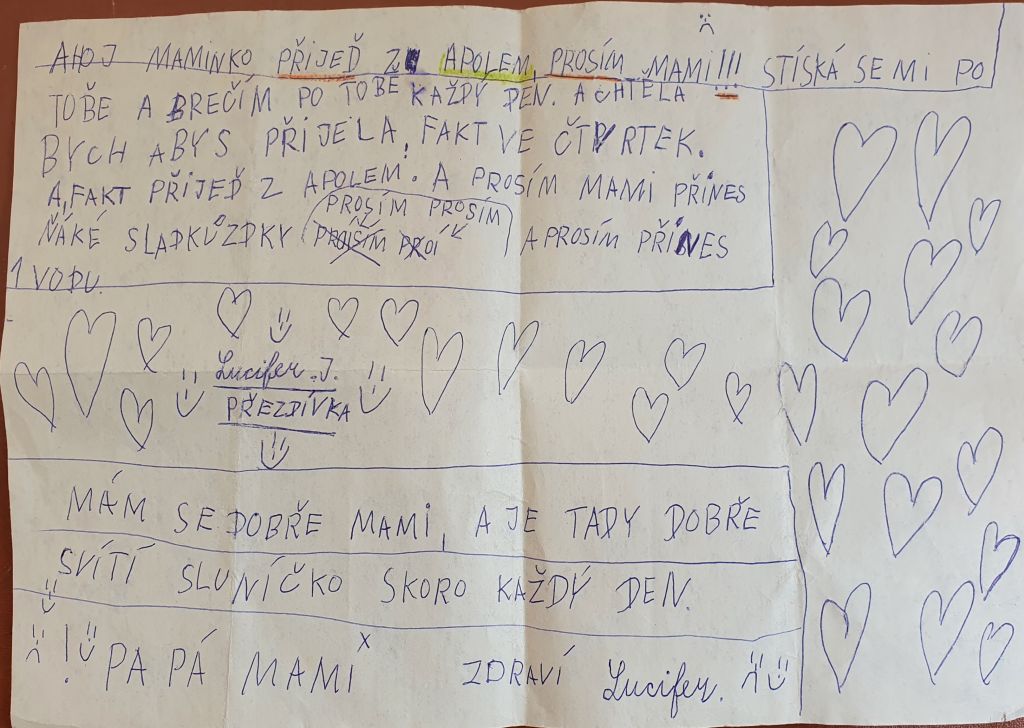 AHOJ MAMINKO PŘIJEĎ Z APOLEM, PROSÍM MAMI!!! STÍSKÁ SE MI PO
TOBE A BREČÍM PO TOBĚ KAŽDÝ DEN. A CHTELA
BYCH ABYS PŘIJELA, FAKT VE ČTVRTEK.
A, FAKT PŘIJEĎ Z APOLEM. A PROSÍM MAMI PŘINES
PROSÍM PROSÍM
ŇÁKÉ SLADKŮZDKY A PROSÍM PŘINES
1 VODU.
Lucifer. J.
PŘEZDÍVKA
MÁM SE DOBŘE MAMI, A JE TADY DOBŘE
SVÍTÍ SLUNÍČKO SKORO KAŽDÝ DEN.
! PA PÁ MAMI x ZDRAVÍ Lucifer.